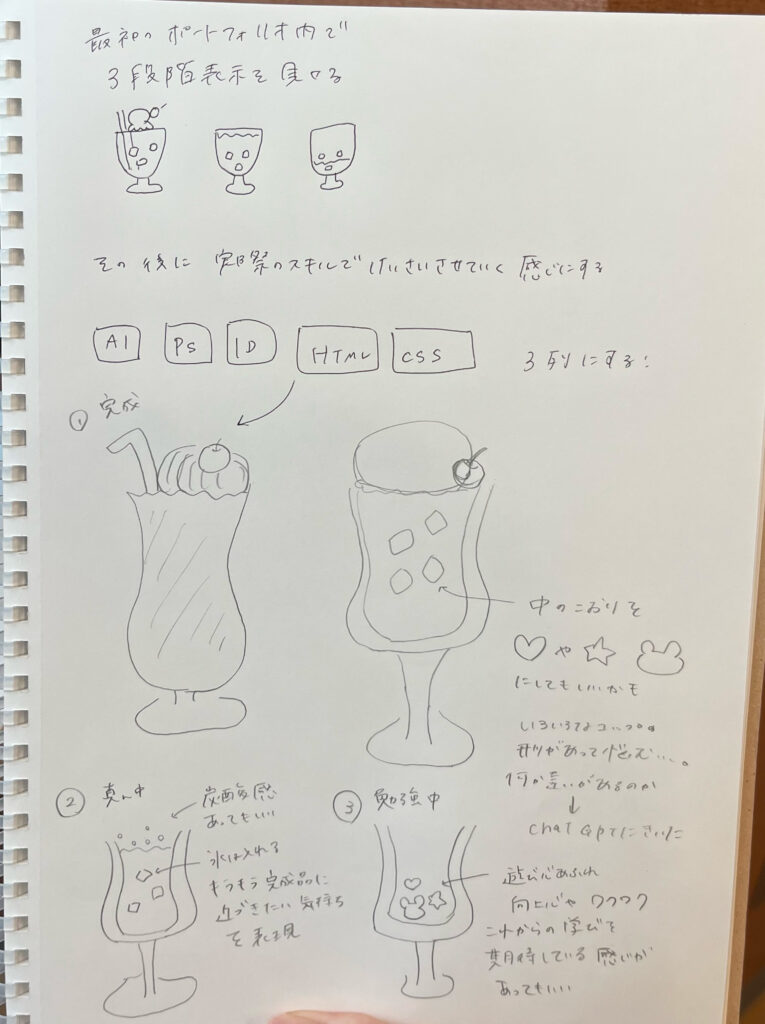 最初のポートフォリオ内で
3段階表示を見せる
その後に 実際のスキルで けいさいさせていく 感じにする
AI
PS
ID
HTML
CSS
3列にする!
① 完成
中のこおりを
♡や☆
にしてもいいかも
いろいろなコップの
形があってなやむ・・・。
何か違いがあるのか
↓
chat GPTにきいた
② 真ん中
炭酸感
あってもいい
氷は入れる
もうもう完成品に
近づきたい気持ち
を表現
③ 勉強中
遊び心あふれ
向上心や ワクワク
これからの学びを
期待している感じが
あってもいい